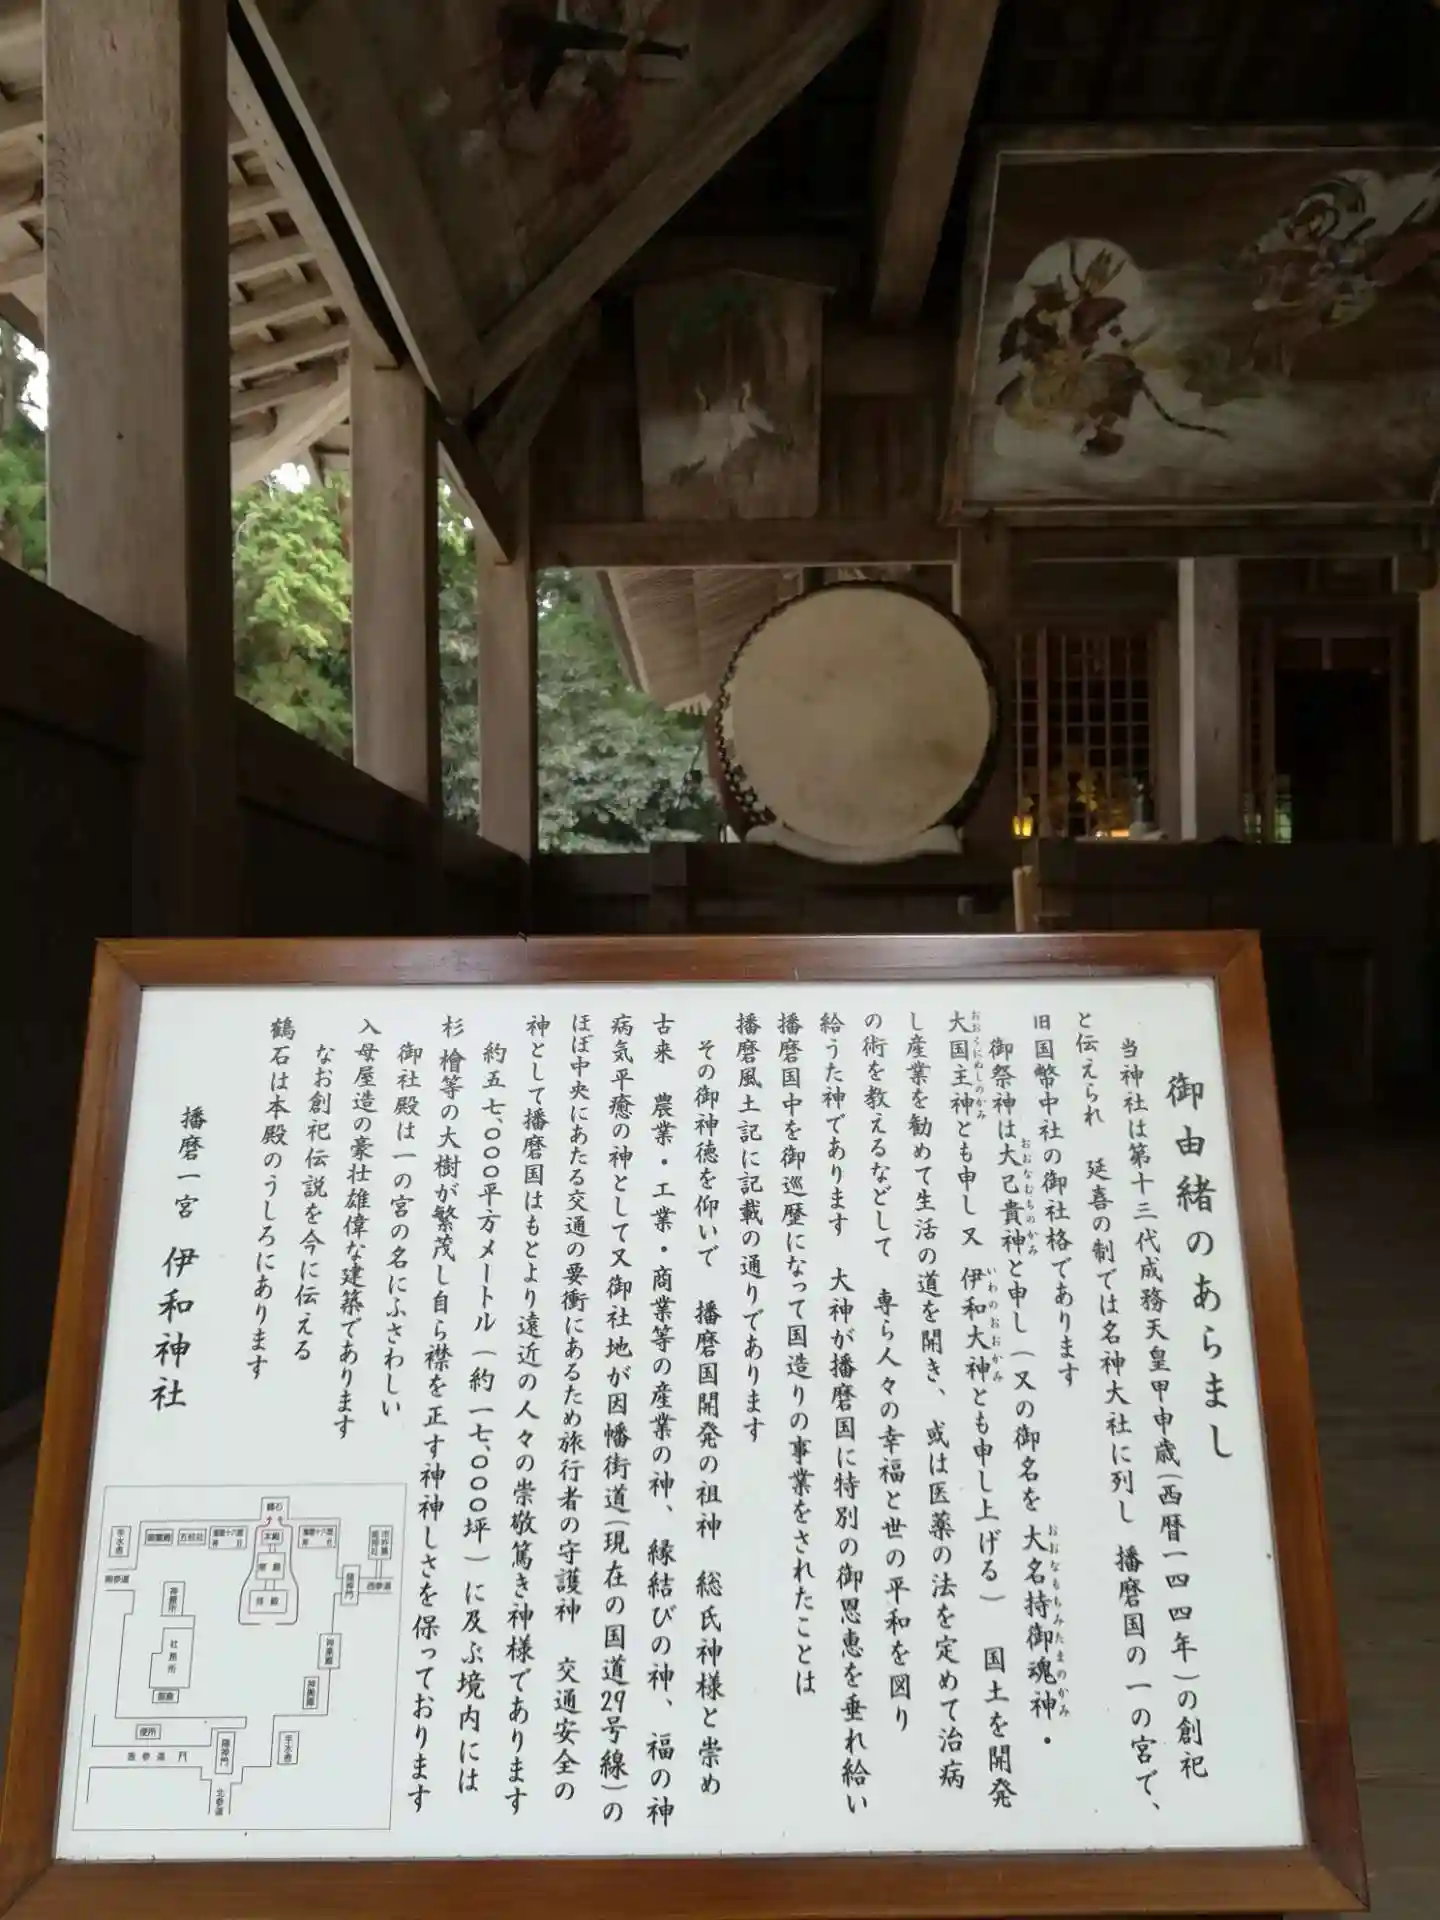 御由緒のあらまし
当神社は第十三代成務天皇甲申歳(西暦一四四年)の創祀
と伝えられ 延喜の制では名神大社に列し 播磨国の一の宮で、
旧国幣中社の御社格であります
御祭神は大己貴神と申し(又の御名を 大名持御魂神・
おおなむちのかみ おおなもちみたまのかみ
大国主神とも申し又 伊和大神とも申し上げる) 国土を開発
おおくにぬしのかみ いわのおおかみ
し産業を勧めて生活の道を開き、 或は医薬の法を定めて治病
の術を教えるなどして 専ら人々の幸福と世の平和を図り
給うた神であります 大神が播磨国に特別の御恩恵を垂れ給い
播磨国中を御巡歴になって国造りの事業をされたことは
播磨風土記に記載の通りであります
その御神徳を仰いで 播磨国開発の祖神 総氏神様と崇め
古来 農業・工業・商業等の産業の神、 縁結びの神、 福の神
病気平癒の神として又御社地が因幡街道(現在の国道29号線)の
ほぼ中央にあたる交通の要衝にあるため旅行者の守護神 交通安全の
神として播磨国はもとより遠近の人々の崇敬篤き神様であります
約五七、〇〇〇平方メートル(約一七、〇〇〇坪)に及ぶ境内には
杉 檜等の大樹が繁茂し自ら襟を正す神神しさを保っております
御社殿は一の宮の名にふさわしい
入母屋造の豪壮雄偉な建築であります
なお創祀伝説を今に伝える
鶴石は本殿のうしろにあります
播磨一宮 伊和神社
鶴石
本殿
幣殿
拝殿
五柱社
御霊殿
手水舎
南参道
西参道
神饌所
社務所
便所
神楽殿
手水舎
随神門
北参道